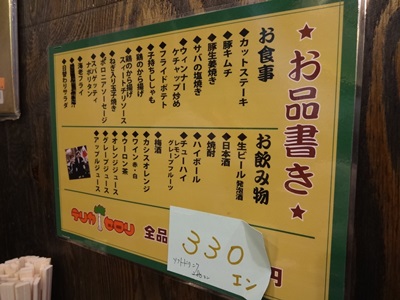 ★お品書き★
お食事
◆カットステーキ
◆豚キムチ
◆豚生姜焼き
◆サバの塩焼き
◆ウィンナー
ケチャップ炒め
◆フライドポテト
◆子持ちししゃも
◆鶏のから揚げ
◆鶏のから揚げ
スィートチリソース
◆ねぎ入り玉子焼き
◆ボロニアソーセージ
◆ナスパゲッティ
ナポリタン
◆海老フライ
◆日替わりサラダ
お飲み物
◆生ビール 発泡酒
◆日本酒
◆焼酎
◆ハイボール
◆チューハイ
レモン
グレープフルーツ
◆カシスオレンジ
◆梅酒
◆ワイン 赤・白
◆ウーロン茶
◆オレンジジュース
◆グレープジュース
◆アップルジュース
全品
330
エン
円